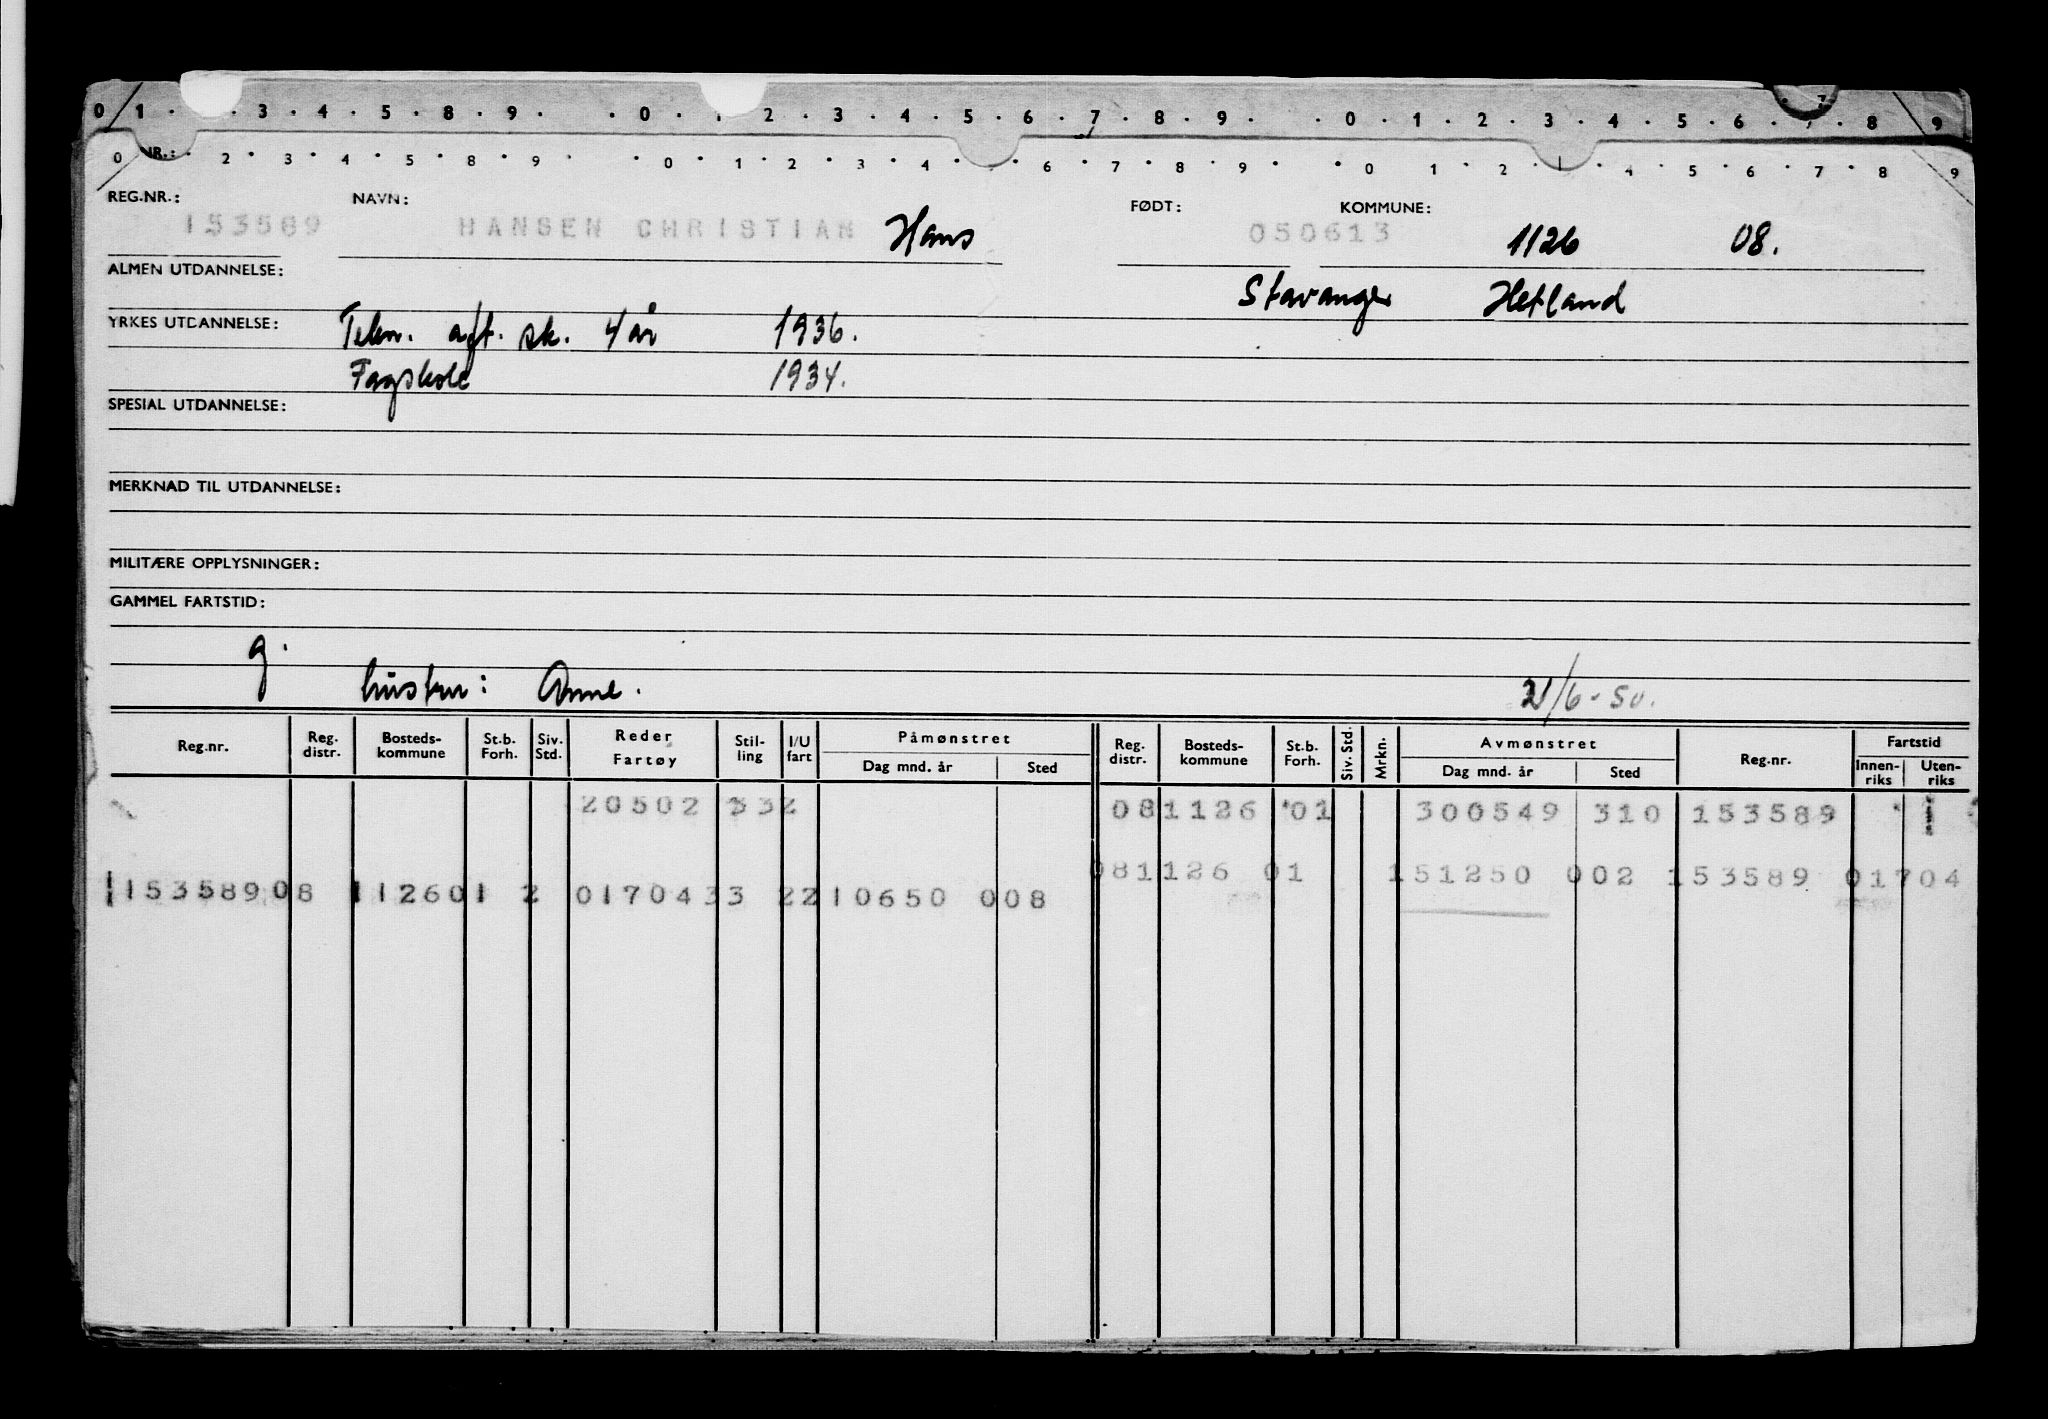 0 1 · · 3 · 4 · 5 · 8 · 9 · · 0 · 1 · 2 · 3 · 4 · 5 · 6 · 7 · 8 · 9 · · 0 · 1 · 2 · 3 · 4 · 5 · 6 · 7 · 8 9
0 NR.: · 2 · 3 · 4 · 5 · 8 · 9 · · 0 · 1 · 2 · 3 · 4 · · 6 · 7 · 8 · 9 · · 0 1 · 2 · · 4 · 5 · 6 · 7 · 8 9
REG.NR.: NAVN: FØDT: KOMMUNE:
153589 HANSEN CHRISTIAN Hans 050613 1126 08.
ALMEN UTDANNELSE: Stavanger Hetland
YRKES UTDANNELSE: Tekn. aft. sk. 4 år 1936.
Fagskole 1934.
SPESIAL UTDANNELSE:
MERKNAD TIL UTDANNELSE:
MILITÆRE OPPLYSNINGER:
GAMMEL FARTSTID:
g.
hustru: Anne. 21/6-50.
Reg.nr. Reg. distr. Bosteds-kommune St.b. Forh. Siv. Std. Reder Fartøy Stil-ling I/U fart Påmønstret Dag mnd. år Sted Reg. distr. Bosteds-kommune St.b. Forh. Siv. Std. Mrkn. Avmønstret Dag mnd. år Sted Reg.nr. Fartstid Innen-riks Uten-riks
20502 332 081126 01 300549 310 153589
081126 01 151250 002 153589 01704
115358908 112601 2 0170433 2210650 008